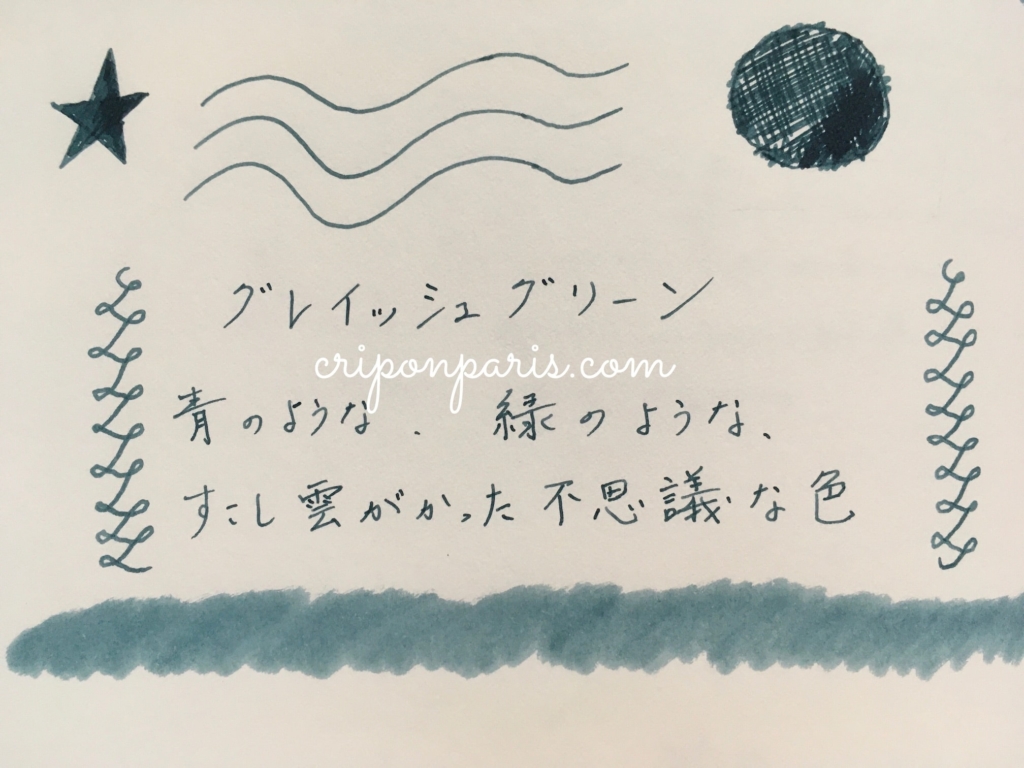 グレイッシュグリーン
criponparis.com
青のような、緑のような、
すこし雲がかった不思議な色